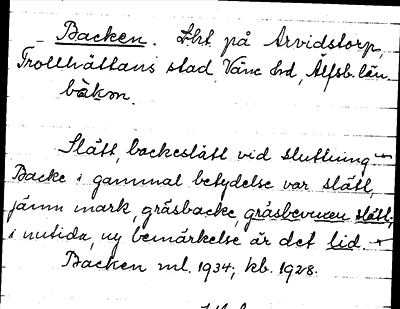 Backen. Lht på Arvidstorp,
Trollhättans stad, Väne hd, Älfsb. län.
bàkən.
Slätt, backeslätt vid sluttning
Backe i gammal betydelse var slätt,
jämn mark, gräsbacke, gräsbevuxen slätt;
i nutida, ny bemärkelse är det lid.
Backen ml. 1934; kb. 1928.